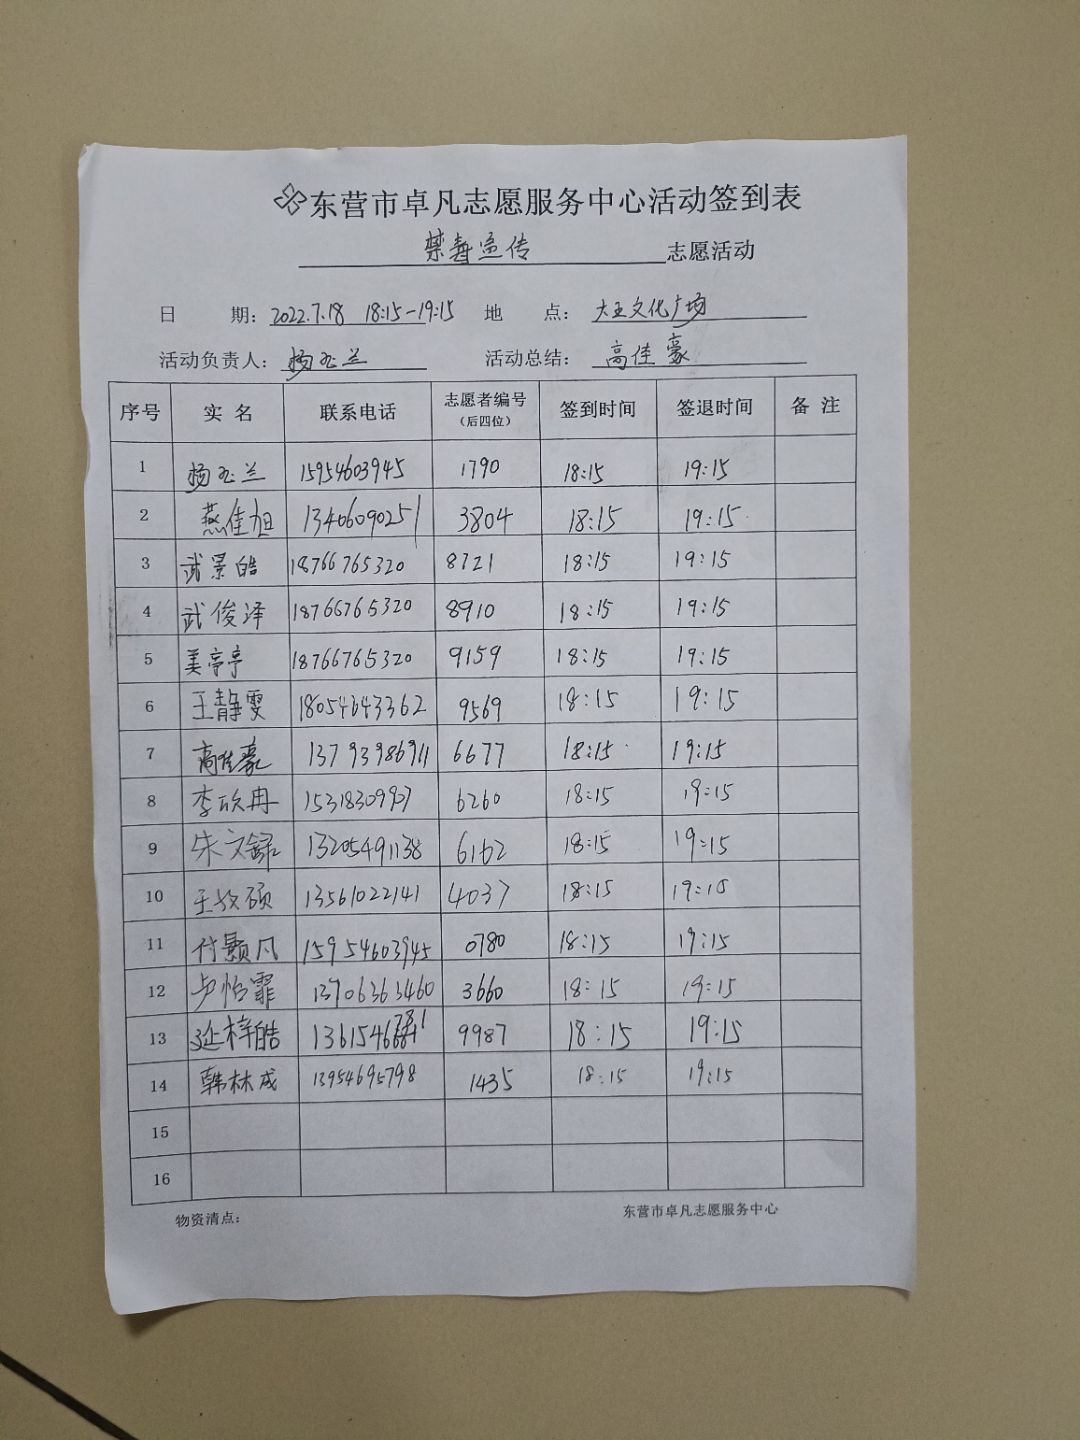 东营市卓凡志愿服务中心活动签到表
禁毒宣传 志愿活动
日 期: 2022.7.18 18:15-19:15 地 点: 大王文化广场
活动负责人: 杨玉兰 活动总结: 高佳豪
序号 实名 联系电话 志愿者编号(后四位) 签到时间 签退时间 备注
1 杨玉兰 15954603945 1790 18:15 19:15
2 燕佳旭 13406090251 3804 18:15 19:15
3 武景皓 18766765320 8721 18:15 19:15
4 武俊泽 18766765320 8910 18:15 19:15
5 姜亭亭 18766765320 9159 18:15 19:15
6 王静雯 18054643362 9569 18:15 19:15
7 高佳豪 13793986911 6677 18:15 19:15
8 李欣冉 6260 18:15 19:15
9 朱文 13205491138 6162 18:15 19:15
10 13561022141 4037 18:15 19:15
11 付颢凡 15954603945 0780 18:15 19:15
12 卢怡霏 13706363460 3660 18:15 19:15
13 延梓皓 9987 18:15 19:15
14 韩林成 13954695798 1435 18:15 19:15
15
16
物资清点: 东营市卓凡志愿服务中心